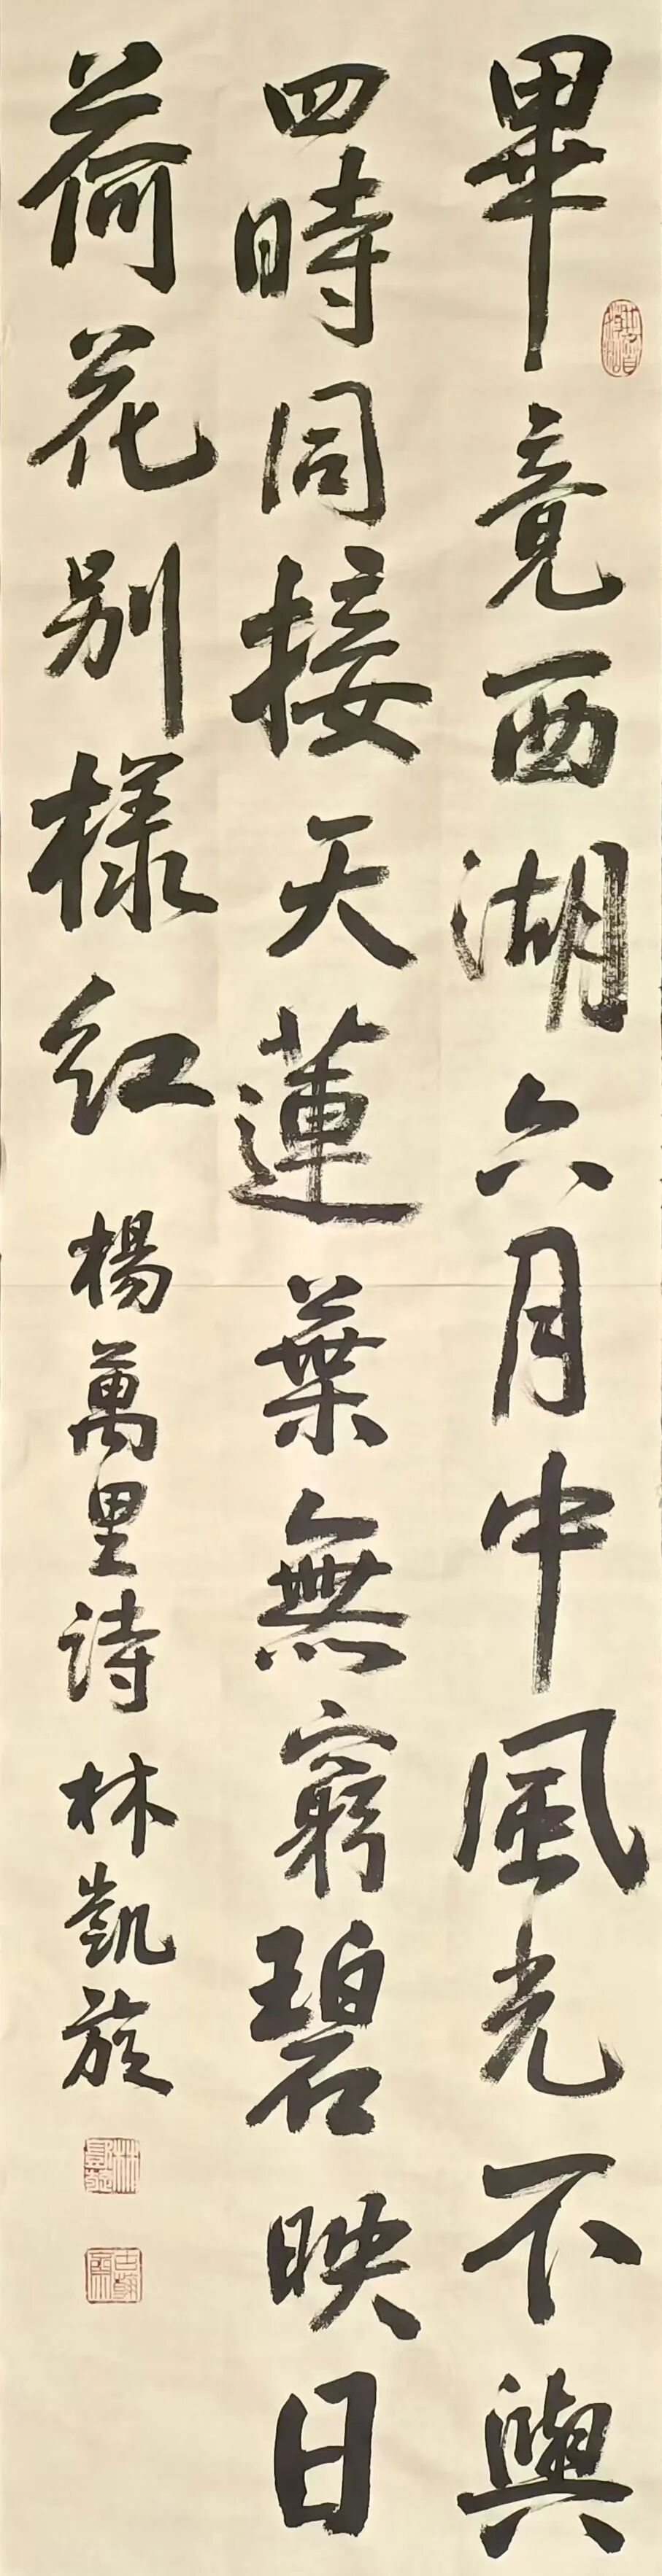 畢竟西湖六月中風光不與
四時同接天蓮葉無窮碧映日
荷花别樣紅
楊萬里詩 林凱旋